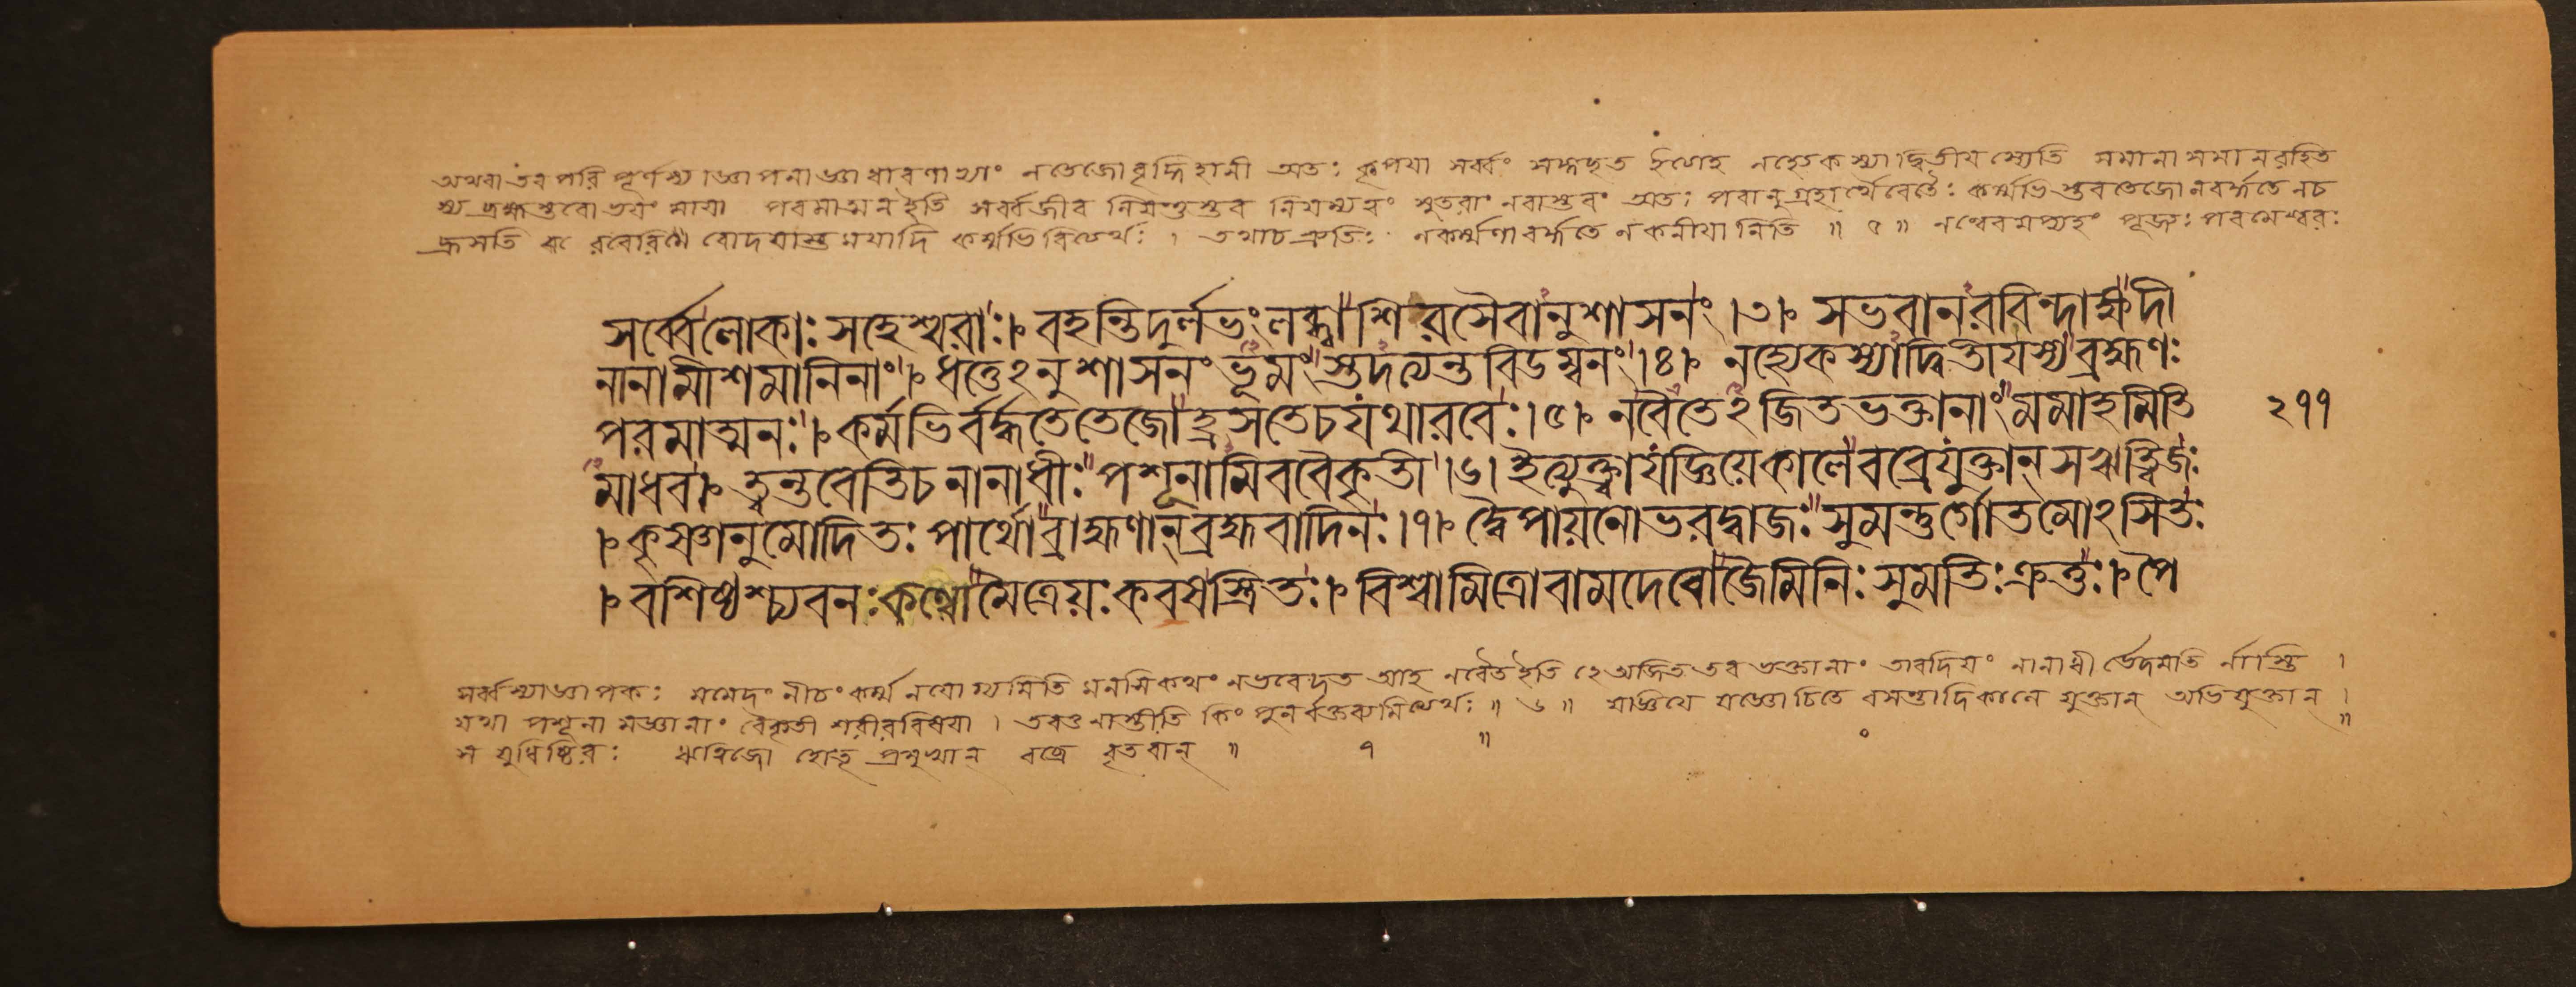 অথবা তব পরিপূর্ণস্য আজ্ঞাপনাজ্ঞাধারণাভ্যাং ন তেজোবৃদ্ধিহানী অতঃ কৃপয়া সর্ব্বং নহ্যেকস্যাদ্বিতীয়স্যেতি সমানাসমানরহিত
স্য ব্রহ্মণস্তবো পরমাত্মন ইতি সর্ব্বজীব নিয়ন্তুস্তব অতঃ পরানুগ্রহার্থৈরেতৈঃ কর্ম্মভিস্তব তেজো ন বর্দ্ধতে ন চ
হ্রসতি রবেরিব কর্ম্মভিরিত্যর্থঃ । তথাচ শ্রুতিঃ ন কর্ম্মণা বর্দ্ধতে ন কনীয়ানিতি ॥ ৫ ॥ পূজ্যঃ পরমেশ্বরঃ
সর্ব্বেলোকাঃ সহেশ্বরাঃ।বহন্তিদুর্লভংলব্ধ্বাশিরসৈবানুশাসনং।৩। সভবানরবিন্দাক্ষদী
নানামীশমানিনাং।ধত্তেঽনুশাসনংভূমংস্তদত্যন্তবিডম্বনং।৪। নহ্যেকস্যাদ্বিতীয়স্যব্রহ্মণঃ
পরমাত্মনঃ।কর্মভির্বর্দ্ধতেতেজোহ্রসতেচযথারবেঃ।৫। নবৈতেঽজিতভক্তানাংমমাহমিতি ২৭৭
মাধব। ত্বন্তবেতিচনানাধীঃপশূনামিববৈকৃতী।৬।ইত্যুক্ত্বাযজ্ঞিয়েকালেবব্রেযুক্তান্সঋত্বিজঃ
।কৃষ্ণানুমোদিতঃ পার্থোব্রাহ্মণান্ব্রহ্মবাদিনঃ।৭। দ্বৈপায়নোভরদ্বাজঃসুমন্তুর্গোতমোঽসিতঃ
।বশিষ্ঠশ্চ্যবনঃকণ্বোমৈত্রেয়ঃকবষস্ত্রিতঃ।বিশ্বামিত্রোবামদেবোজৈমিনিঃসুমতিঃক্রতুঃ।পৈ
সর্ব্বস্যাজ্ঞাপকঃ মমেদং নীচং কর্ম্ম ন যোগ্যমিতি মনসি কথং ন ভবেদত আহ নবৈত ইতি হে অজিত তব ভক্তানাং তাবদিয়ং নানাধীর্ভেদমতি র্নাস্তি ।
যথা পশূনামজ্ঞানাং বৈকৃতী শরীরবিষয়া । তবতু নাস্তীতি কিং পুনর্বক্তব্যমিত্যর্থঃ ॥ ৬ ॥ যজ্ঞিয়ে যজ্ঞোচিতে বসন্তাদিকালে যুক্তান্ অভিযুক্তান্ ।
স যুধিষ্ঠিরঃ ঋত্বিজো হোতৃপ্রমুখান্ বব্রে বৃতবান্ ॥ ৭ ॥